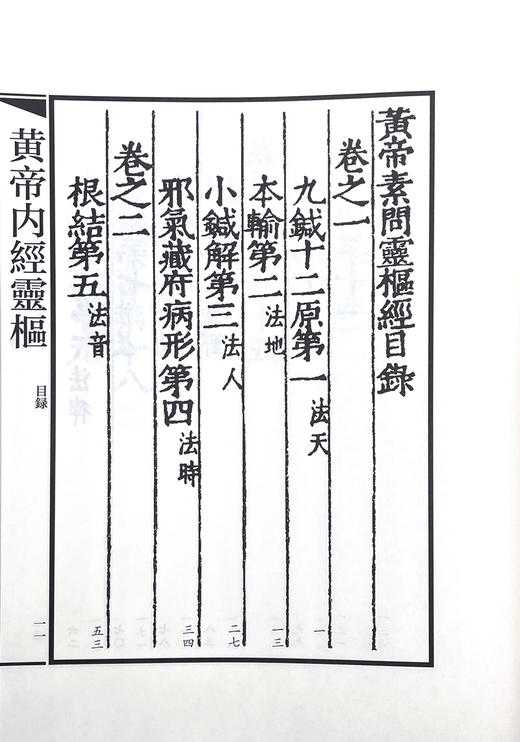 黃帝素問靈樞經目錄
卷之一
九鍼十二原第一 法天 一
本輸第二 法地 一三
小鍼解第三 法人 二七
邪氣藏府病形第四 法時 三四
卷之二
根結第五 法音 五三
黃帝内經靈樞 目録